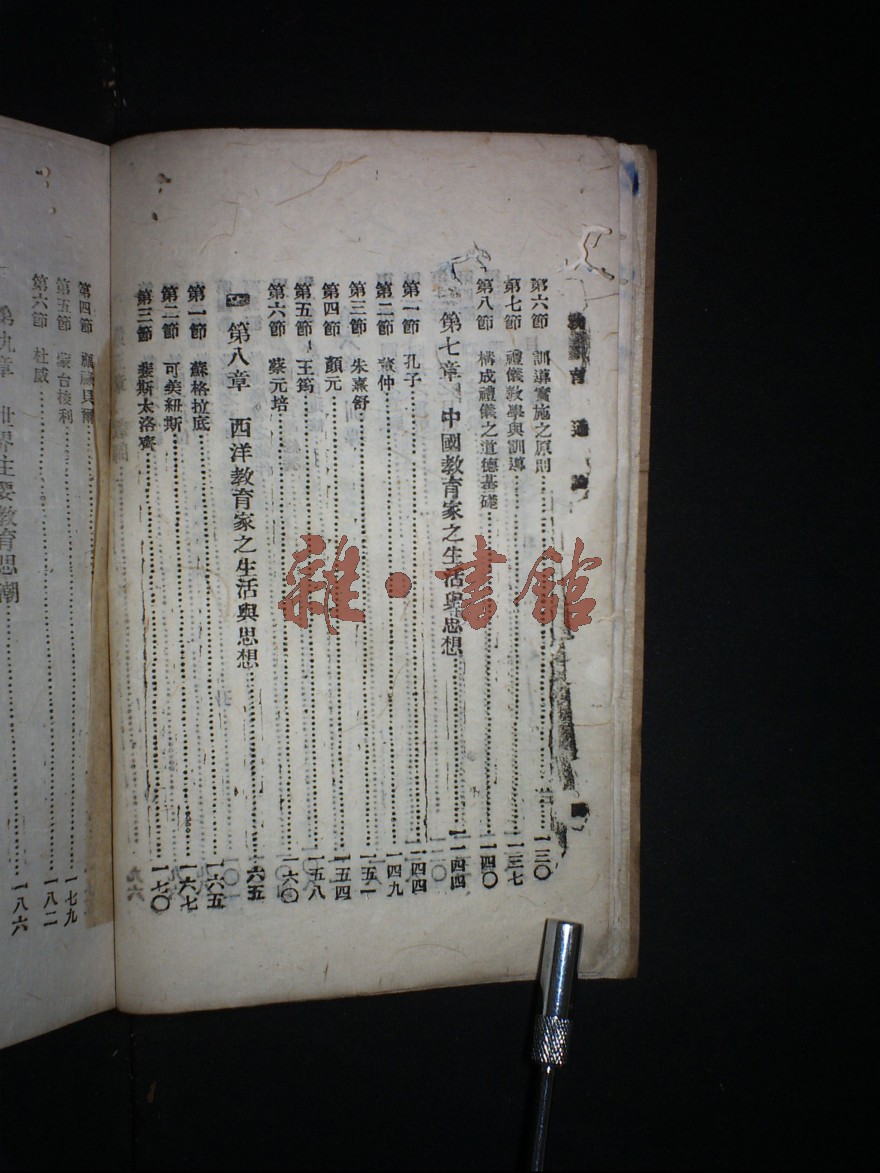 育通論
第六節 訓導實施之原則 一三〇
第七節 禮儀教學與訓導 一三七
第八節 構成禮儀之道德基礎 一四〇
第七章 中國教育家之生活與思想 一四四
第一節 孔子 一四四
第二節 董仲 一四九
第三節 朱熹舒 一五一
第四節 顏元 一五四
第五節 王筠 一五八
第六節 蔡元培 一六〇
第八章 西洋教育家之生活與思想 一六五
第一節 蘇格拉底 一六五
第二節 可美紐斯 一六七
第三節 裴斯太洛齊 一七〇
第四節
第五節 蒙台梭利 一七九
第六節 杜威 一八二
第九章 世界主要教育思潮 一八六
雜·書館